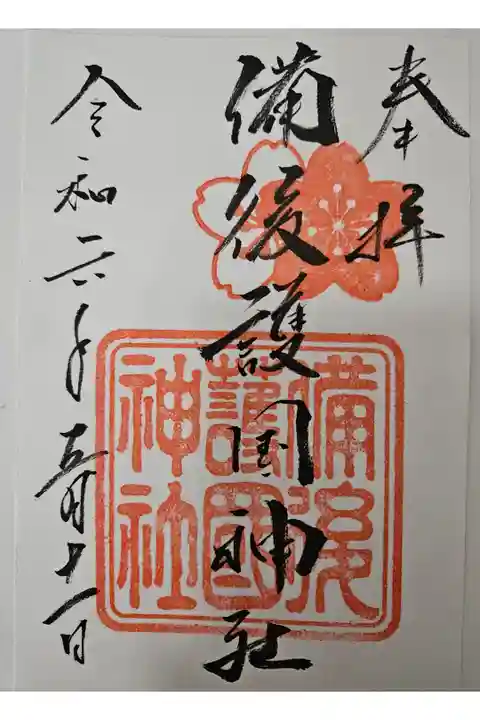 奉拝
備後護国神社
備後
護國
神社
令和六年五月十一日